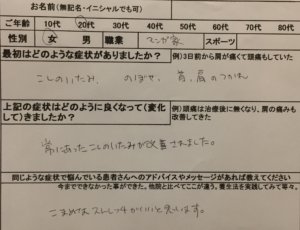 お名前(無記名・イニシャルでも可)
ご年齢 10代 20代 30代 40代 50代 60代 70代 80代
性別 女 男 職業 マンガ家 スポーツ
最初はどのような症状がありましたか？ 例)3日前から肩が痛くて頭痛もしていた
こしのいたみ、のぼせ、首、肩のつかれ
上記の症状はどのように良くなって(変化して)きましたか？ 例)頭痛は治療後に無くなり、肩の痛みも改善できた
常にあったこしのいたみが改善されました。
同じような症状で悩んでいる患者さんへのアドバイスやメッセージがあれば教えてください
今までできなかった事ができた。他院と比べてここが違う。養生法を実践してみて等々。
こまめなストレッチがいいと思います。